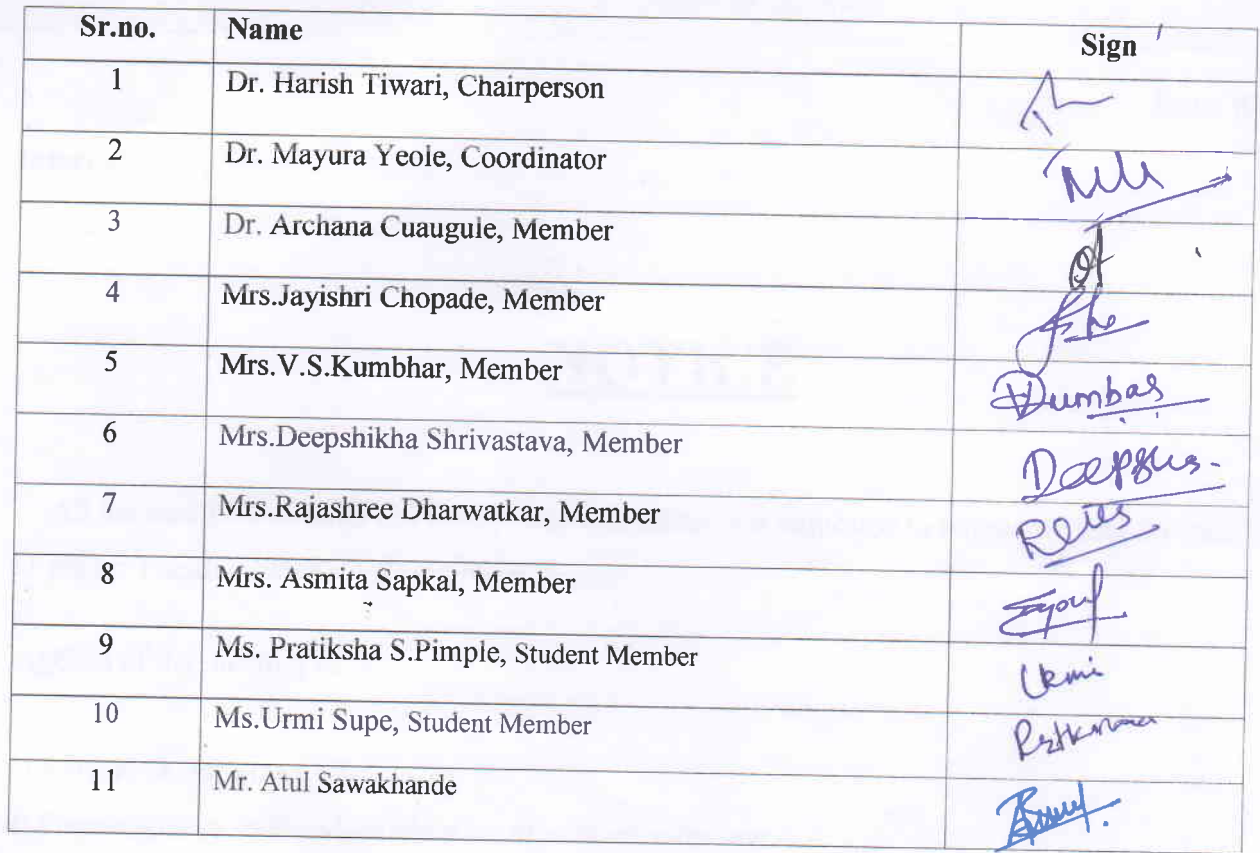 Sr.no. Name Sign
1 Dr. Harish Tiwari, Chairperson
2 Dr. Mayura Yeole, Coordinator
3 Dr. Archana Cuaugule, Member
4 Mrs.Jayishri Chopade, Member
5 Mrs.V.S.Kumbhar, Member
6 Mrs.Deepshikha Shrivastava, Member
7 Mrs.Rajashree Dharwatkar, Member
8 Mrs. Asmita Sapkal, Member
9 Ms. Pratiksha S.Pimple, Student Member Urmi
10 Ms.Urmi Supe, Student Member
11 Mr. Atul Sawakhande